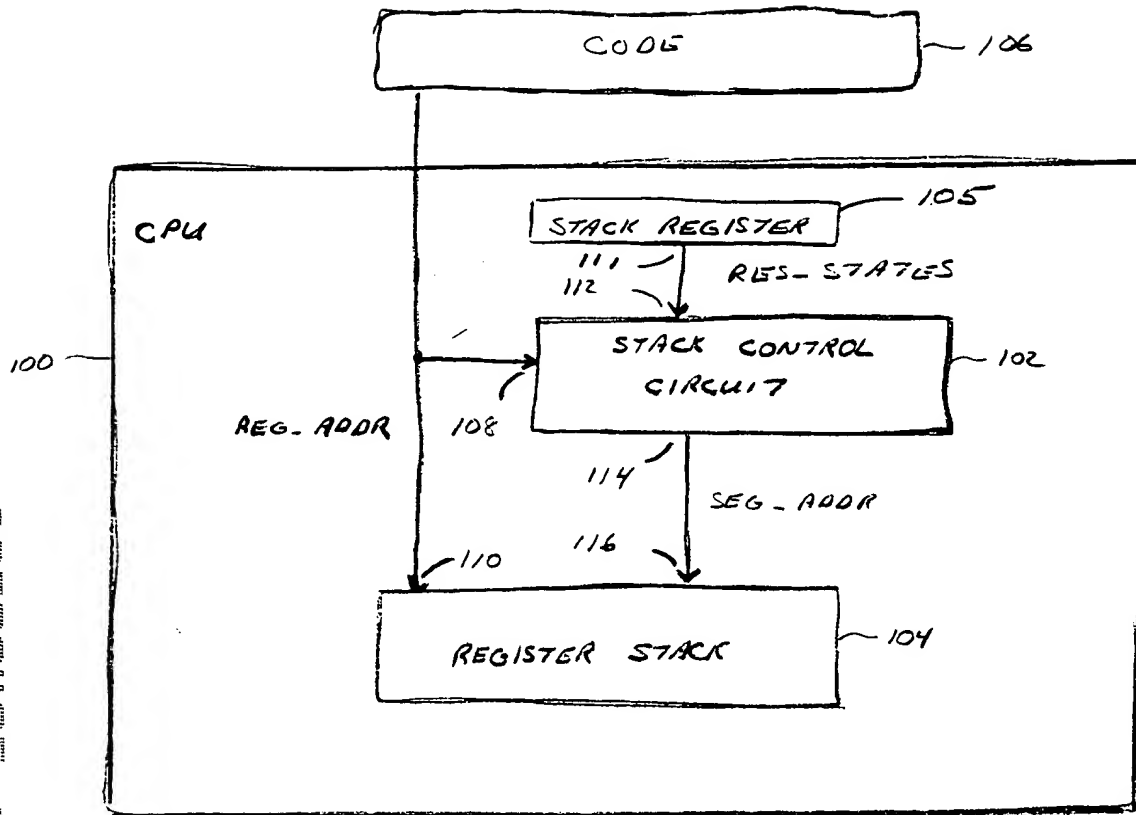 CODE
106
CPU
STACK REGISTER
105
111
RES_STATES
112
STACK CONTROL
CIRCUIT
102
100
REG_ADDR
108
114
SEG_ADDR
110
116
REGISTER STACK
104